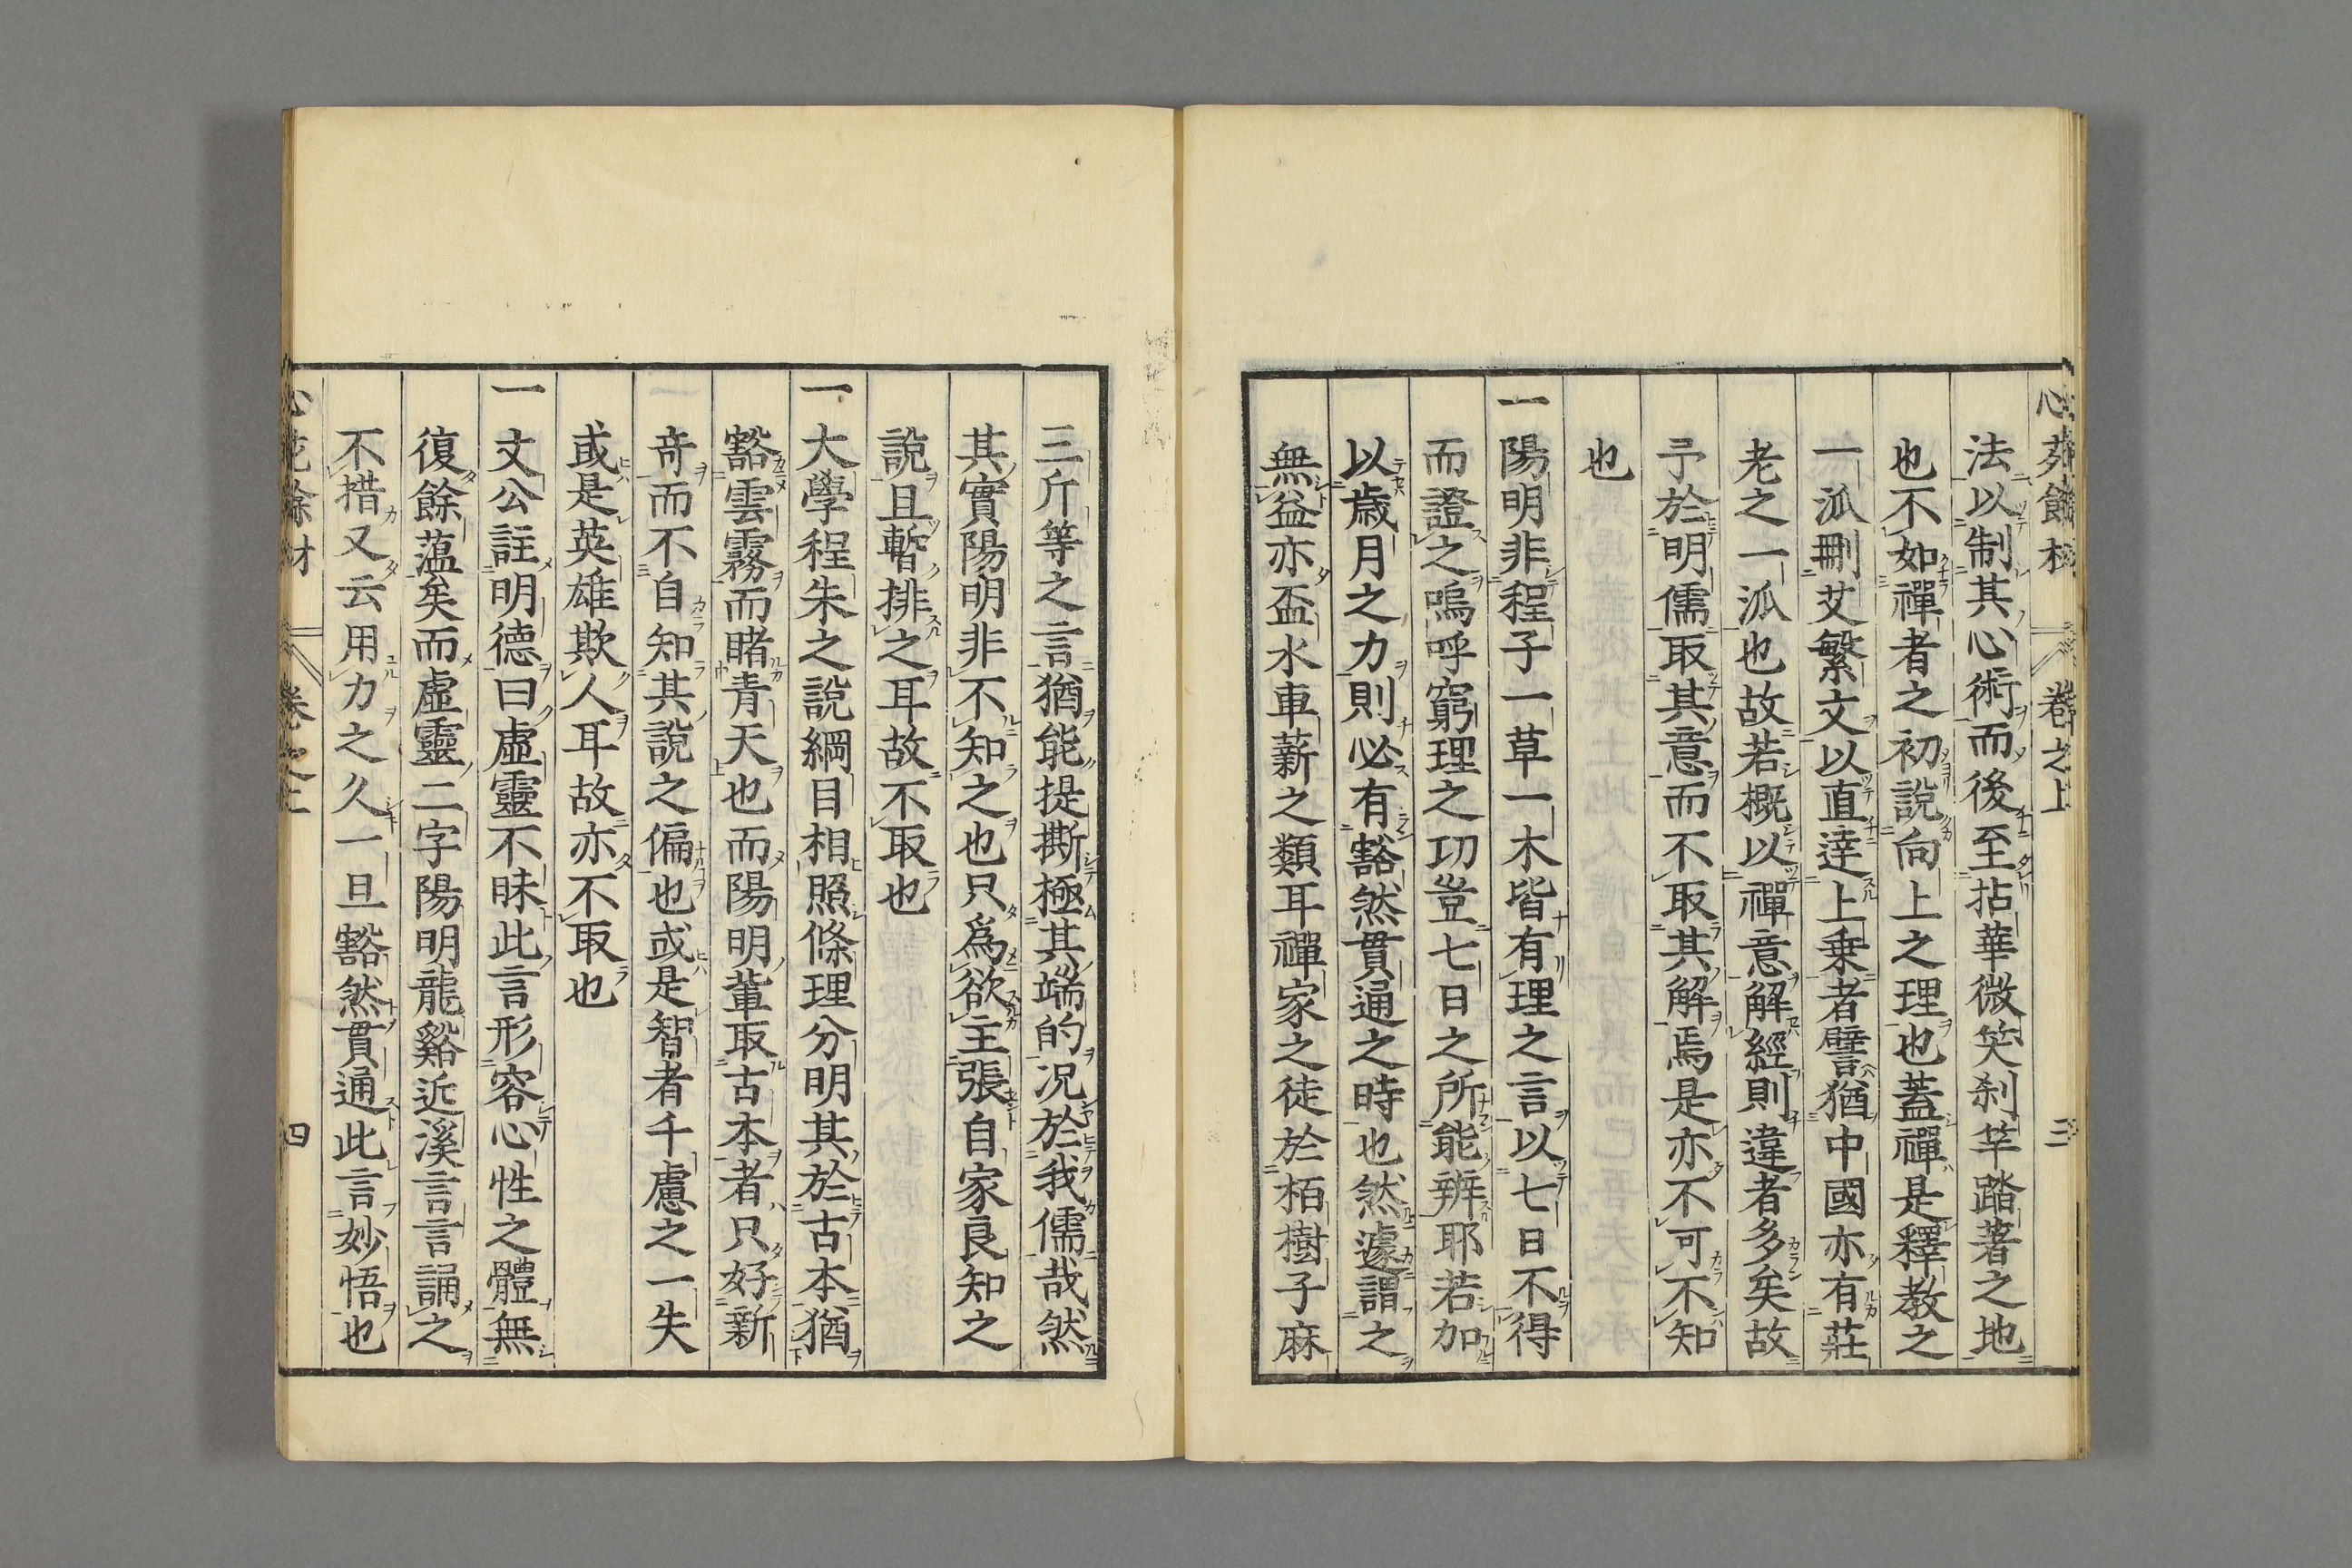 卷之上 三
法以制其心術而後至拈華微笑刹竿踏著之地
也不如禪者之初說向上之理也蓋禪是釋教之
一派刪艾繁文以直達上乗者譬猶中國亦有莊
老之一派也故若概以禪意解經則違者多矣故
予於明儒取其意而不取其解焉是亦不可不知
也
一陽明非程子一草一木皆有理之言以七日不得
而證之嗚呼窮理之功豈七日之所能辨耶若加
以歳月之力則必有豁然貫通之時也然遽謂之
無益亦盃水車薪之類耳禪家之徒於栢樹子麻
三斤等之言猶能提撕極其端的况於我儒哉然
其實陽明非不知之也只爲欲主張自家良知之
說且暫排之耳故不取也
一大學程朱之說綱目相照條理分明其於古本猶
豁雲霧而睹青天也而陽明軰取古本者只好新
奇而不自知其說之偏也或是智者千慮之一失
或是英雄欺人耳故亦不取也
一文公註明德曰虛靈不昧此言形容心性之體無
復餘薀矣而虛靈二字陽明龍谿近溪言言誦之
不措又云用力之久一旦豁然貫通此言妙悟也
四